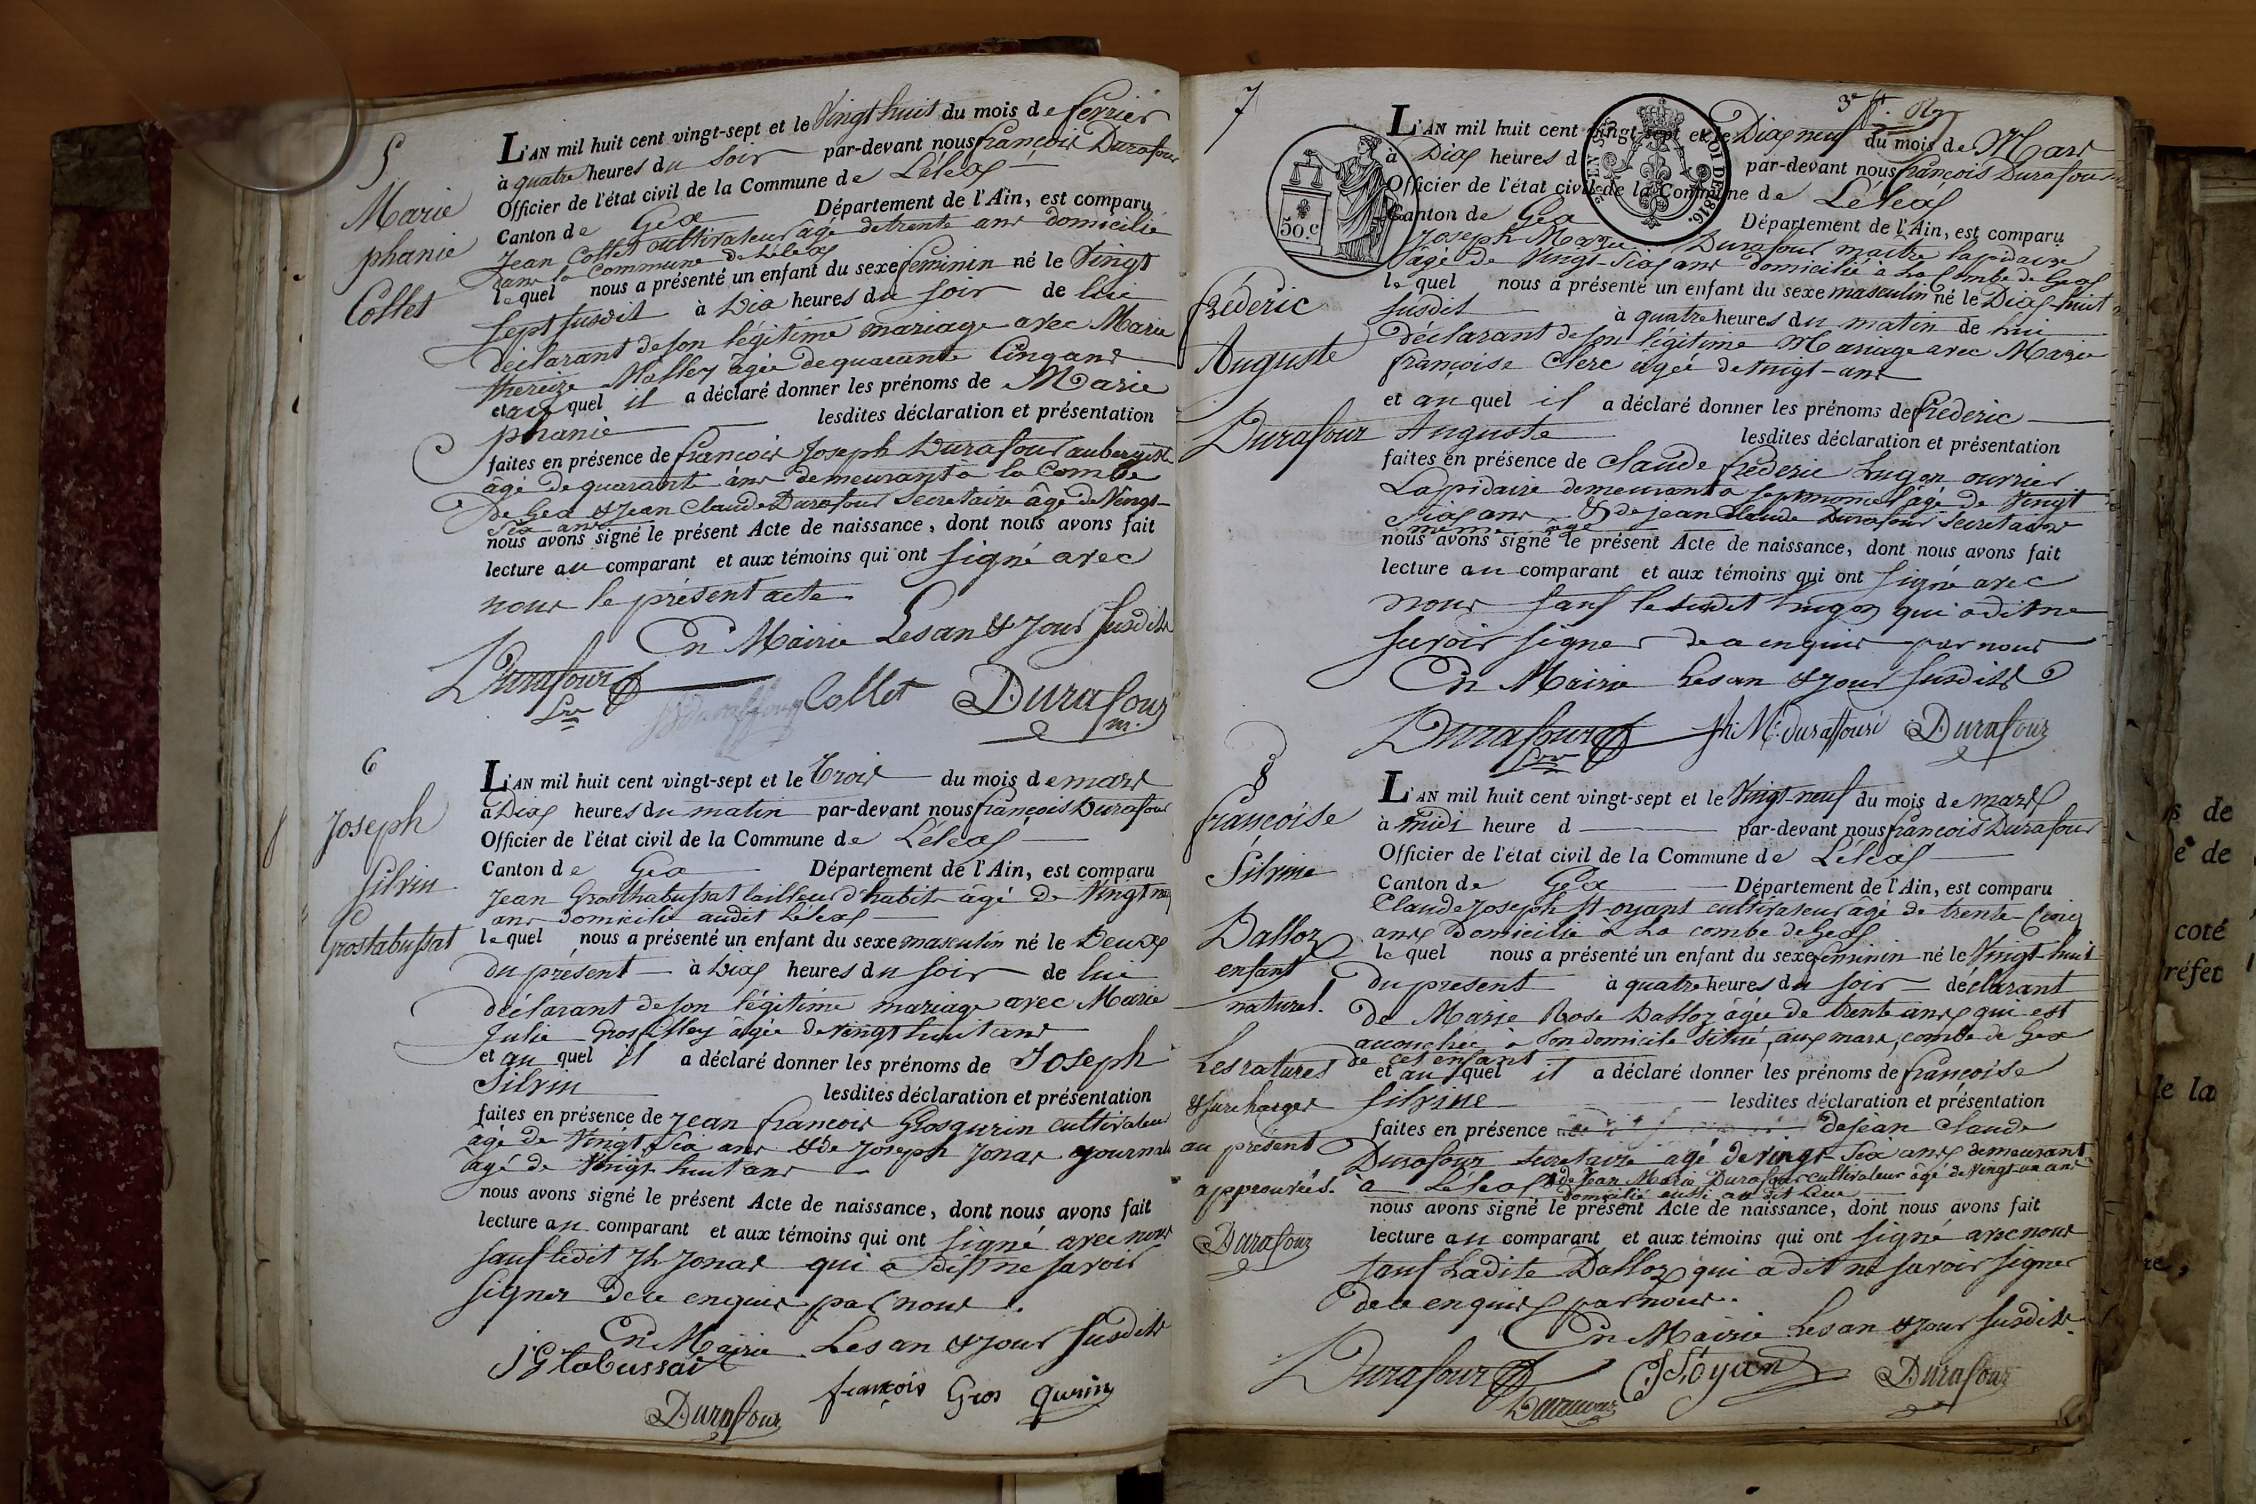 5
Marie
phanie
Collet
L'AN mil huit cent vingt-sept et le Vingt huit du mois de fevrier
à quatre heures du soir par-devant nous françois Durafour
Officier de l'état civil de la Commune de Léleax
Canton de Gex Département de l'Ain, est comparu
Jean Collet cultivateur âgé de trente ans domicilié
dans la Commune de Léleax
lequel nous a présenté un enfant du sexe feminin né le Vingt
sept susdit à Dix heures du soir de lui
déclarant de son légitime mariage avec Marie
thereize Molley âgée de quarante Cinq ans
et au quel il a déclaré donner les prénoms de Marie
phanie lesdites déclaration et présentation
faites en présence de francois Joseph Durafour aubergiste
âgé de quarante ans demeurant a la Combe
de Gex & Jean Claude Durafour Secretaire âgé de Vingt-
Six ans
nous avons signé le présent Acte de naissance, dont nous avons fait
lecture au comparant et aux témoins qui ont signé avec
nous le présent acte
En Mairie Les an & Jour susdits
Durafour
Sre
Collet
Durafour
m.
6
Joseph
Silvin
Grostabussat
L'AN mil huit cent vingt-sept et le Trois du mois de mars
à Dix heures du matin par-devant nous françois Durafour
Officier de l'état civil de la Commune de Léleax
Canton de Gex Département de l'Ain, est comparu
Jean Grosthabussat tailleur d'habits âgé de Vingt neuf
ans domicilié audit Léleax
lequel nous a présenté un enfant du sexe masculin né le Deux
du présent à Dix heures du soir de lui
déclarant de son légitime mariage avec Marie
Julie Grosfilley âgée de vingt huit ans
et au quel il a déclaré donner les prénoms de Joseph
Silvin lesdites déclaration et présentation
faites en présence de Jean francois Grosgurin cultivateur
âgé de Vingt Six ans & de Joseph Jonas
âgé de Vingt huit ans
nous avons signé le présent Acte de naissance, dont nous avons fait
lecture au comparant et aux témoins qui ont signé avec nous
sauf ledit Jh Jonas qui a dit ne savoir
signer de ce enquis par nous.
En Mairie Les an & Jour susdits
JGtabussat
Durafour
françois Gros Gurin
7
3e
50.c
LOI DE 1816.
fréderic
Auguste
Durafour
L'AN mil huit cent vingt-sept et le Dix neuf du mois de Mars
à Dix heures d par-devant nous françois Durafour
Officier de l'état civil de la Commune de Léleax
Canton de Gex Département de l'Ain, est comparu
Joseph Marie Durafour maitre lapidaire
âgé de Vingt-Six ans domicilié à La Combe de Gex
lequel nous a présenté un enfant du sexe masculin né le Dix-huit
susdit à quatre heures du matin de lui
déclarant de son légitime Mariage avec Marie
françoise Clerc âgée de vingt-ans
et au quel il a déclaré donner les prénoms de fréderic
Auguste lesdites déclaration et présentation
faites en présence de Claude fréderic hugon ouvrier
Lapidaire demeurant a Septmoncel âgé de Vingt
Six ans & de Jean Claude Durafour Secretaire
même âge
nous avons signé le présent Acte de naissance, dont nous avons fait
lecture au comparant et aux témoins qui ont signé avec
nous sauf le susdit hugon qui a dit ne
savoir signer de ce enquis par nous
En Mairie Les an & Jour susdits
Durafour
Sre
Jh. M. duraffour
Durafour
8
françoise
Silvine
Dalloz
enfant
naturel.
Les ratures
& surcharges
au présent
approuvées.
Durafour
L'AN mil huit cent vingt-sept et le Vingt-neuf du mois de mars
à midi heure d par-devant nous françois Durafour
Officier de l'état civil de la Commune de Léleax
Canton de Gex Département de l'Ain, est comparu
Claude Joseph St-oyant cultivateur âgé de trente-Cinq
ans domicilié à La combe de Gex
lequel nous a présenté un enfant du sexe feminin né le Vingt-huit
du present à quatre heures du soir déclarant
de Marie Rose Dalloz âgée de trente ans qui est
acouchée à son domicile situé, aux mars, combe de Gex
de cet enfant
et au quel il a déclaré donner les prénoms de françoise
Silvine lesdites déclaration et présentation
faites en présence de jean Claude
Durafour Secretaire agé de vingt Six ans demeurant
a Léleax & de Jean Marie Durafour cultivateur âgé de Vingt-un ans
domicilié aussi au dit Lieu
nous avons signé le présent Acte de naissance, dont nous avons fait
lecture au comparant et aux témoins qui ont signé avec nous
sauf Ladite Dalloz qui a dit ne savoir signer
de ce enquis par nous.
En Mairie Les an & Jour susdits.
Durafour
StOyant
Durafour
de
e de
coté
réfet
de la